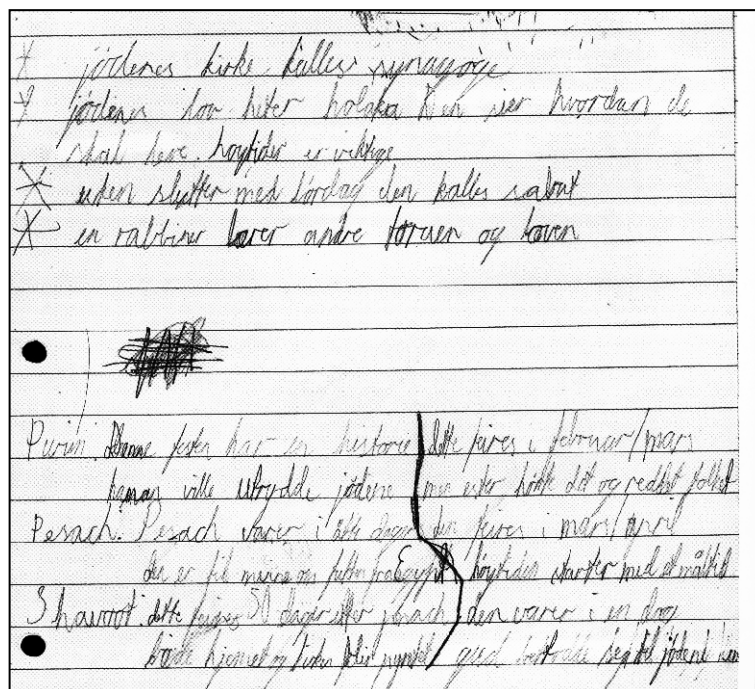 * jødenes kirke kalles synagoge
* jødenes lov heter halaka Den sier hvordan de
skal leve. høytider er viktige
* uken slutter med lørdag den kalles sabat
* en rabbiner lærer andre toraen og loven
Purim. Denne festen har en historie dette feires i februar/mars
haman ville utrydde jødene men ester hørte det og reddet folket
Pesach. Pesach varer i åtte dager den feires i mars/april
den er til minne om Egypt høytiden starter med et måltid
Shavuot. dette feires 50 dager etter pesach den varer i en dag
både hjemet og kirken blir pyntet gud seg til jødene